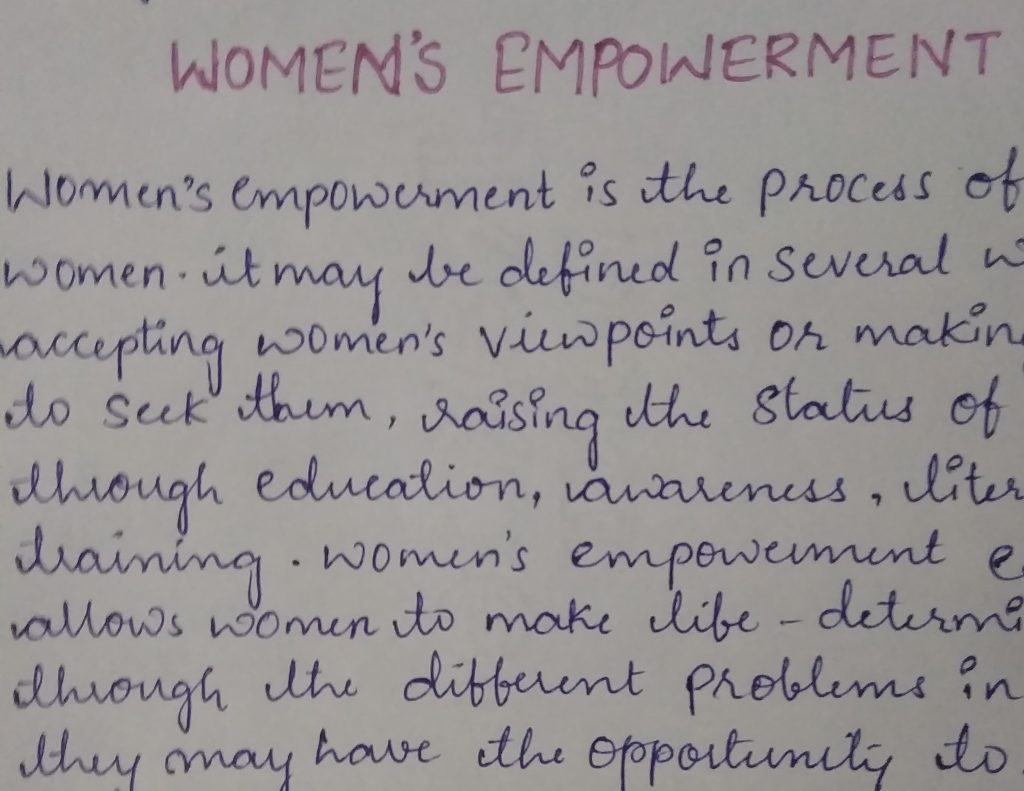 WOMEN'S EMPOWERMENT
Women's empowerment is the process of
women. it may be defined in several w
accepting women's viewpoints or makin
to seek them, raising the status of
through education, awareness, liter
training. women's empowerment e
allows women to make life - determi
through the different problems in
they may have the opportunity to